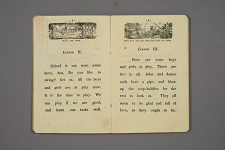 Lesson II.
School is out now, come
here, Ann. Do you like to
swing? Get in. All the boys
and girls are at play now.
It is the time to play. We
can play if we are good,
and learn our tasks well.
Lesson III.
Here are some boys
and girls at play. There are
five in all. John and James
each have a pipe, and blow
up the soap-bubbles for the
rest to look at. They all
seem to be glad and full of
love, as they ought to be.